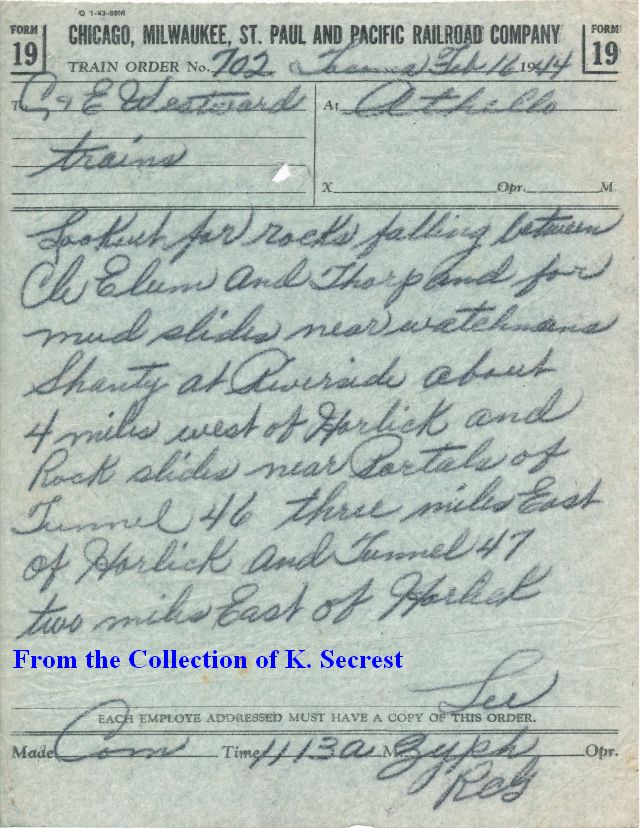 FORM 19
CHICAGO, MILWAUKEE, ST. PAUL AND PACIFIC RAILROAD COMPANY
FORM 19
TRAIN ORDER No. 702 Tacoma Feb 16 1944
To C & E Westward
At Othello
trains
X Opr. M.
Lookout for rocks falling between
Cle Elum and Thorp and for
mud slides near watchmans
Shanty at Riverside about
4 miles west of Horlick and
Rock slides near Portals of
Tunnel 46 three miles East
of Horlick and Tunnel 47
two miles East of Horlick
From the Collection of K. Secrest
EACH EMPLOYE ADDRESSED MUST HAVE A COPY OF THIS ORDER.
Made Com Time 113a M Opr.